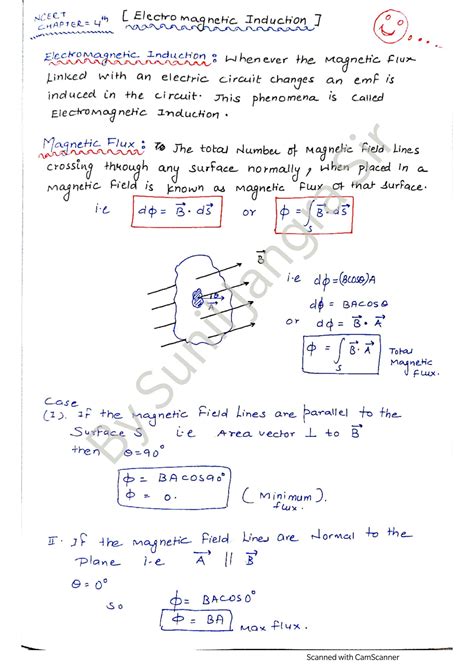 NCERT
CHAPTER = 4th
[Electromagnetic Induction]
Electromagnetic Induction : Whenever the Magnetic flux
Linked with an electric circuit changes an emf is
induced in the circuit. This phenomena is called
Electromagnetic Induction.
Magnetic Flux : The total Number of magnetic field Lines
crossing through any surface normally, when placed in a
magnetic field is known as magnetic flux of that surface.
i.e dϕ = B⃗ · dS⃗ or ϕ = ∫ B⃗ · dS⃗
S
B⃗
i.e dϕ = (Bcosθ)A
dϕ = BAcosθ
or dϕ = B⃗ · A⃗
ϕ = ∫ B⃗ · A⃗ Total
S Magnetic
flux.
Case
(I). If the magnetic field Lines are parallel to the
Surface S i.e Area vector ⊥ to B⃗
then θ = 90°
ϕ = BACOS90°
ϕ = 0. (Minimum)
flux.
II. If the magnetic field Lines are Normal to the
Plane i.e A⃗ || B⃗
θ = 0°
So ϕ = BACOS0°
ϕ = BA Max flux.
By Sunil Jangra Sir
Scanned with CamScanner